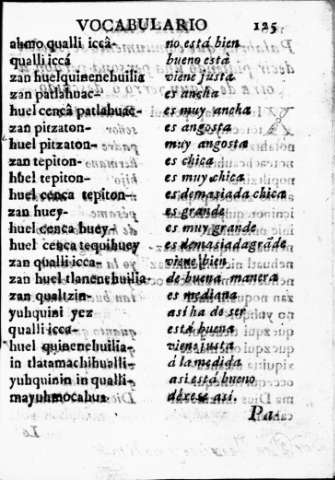 VOCABULARIO 125
ahmo qualli iccâ- no está bien
qualli iccá bueno está
zan huelquinenehuilia viene justa
zan patlahuac- es ancha
huel cencâ patlahuac- es muy ancha
zan pitzaton- es angosta
huel pitzaton- muy angosta
zan tepiton- es chica
huel tepiton- es muy chica
huel cenca tepiton- es demasiada chica
zan huey- es grande
huel cenca huey- es muy grande
huel cenca tequihuey es demasiada gräde
zan qualli icca- viene bien
zan huel tlanenehuilia- de buena manera
zan qualtzin- es mediana
yuhquini yez asi ha de ser
qualli icca- está buena
huel quinenehuilia- viene justa
in tlatamachihualli- á la medida
yuhquinin in qualli- asi está bueno
mayuhmocahua dexese asi.
Pa-